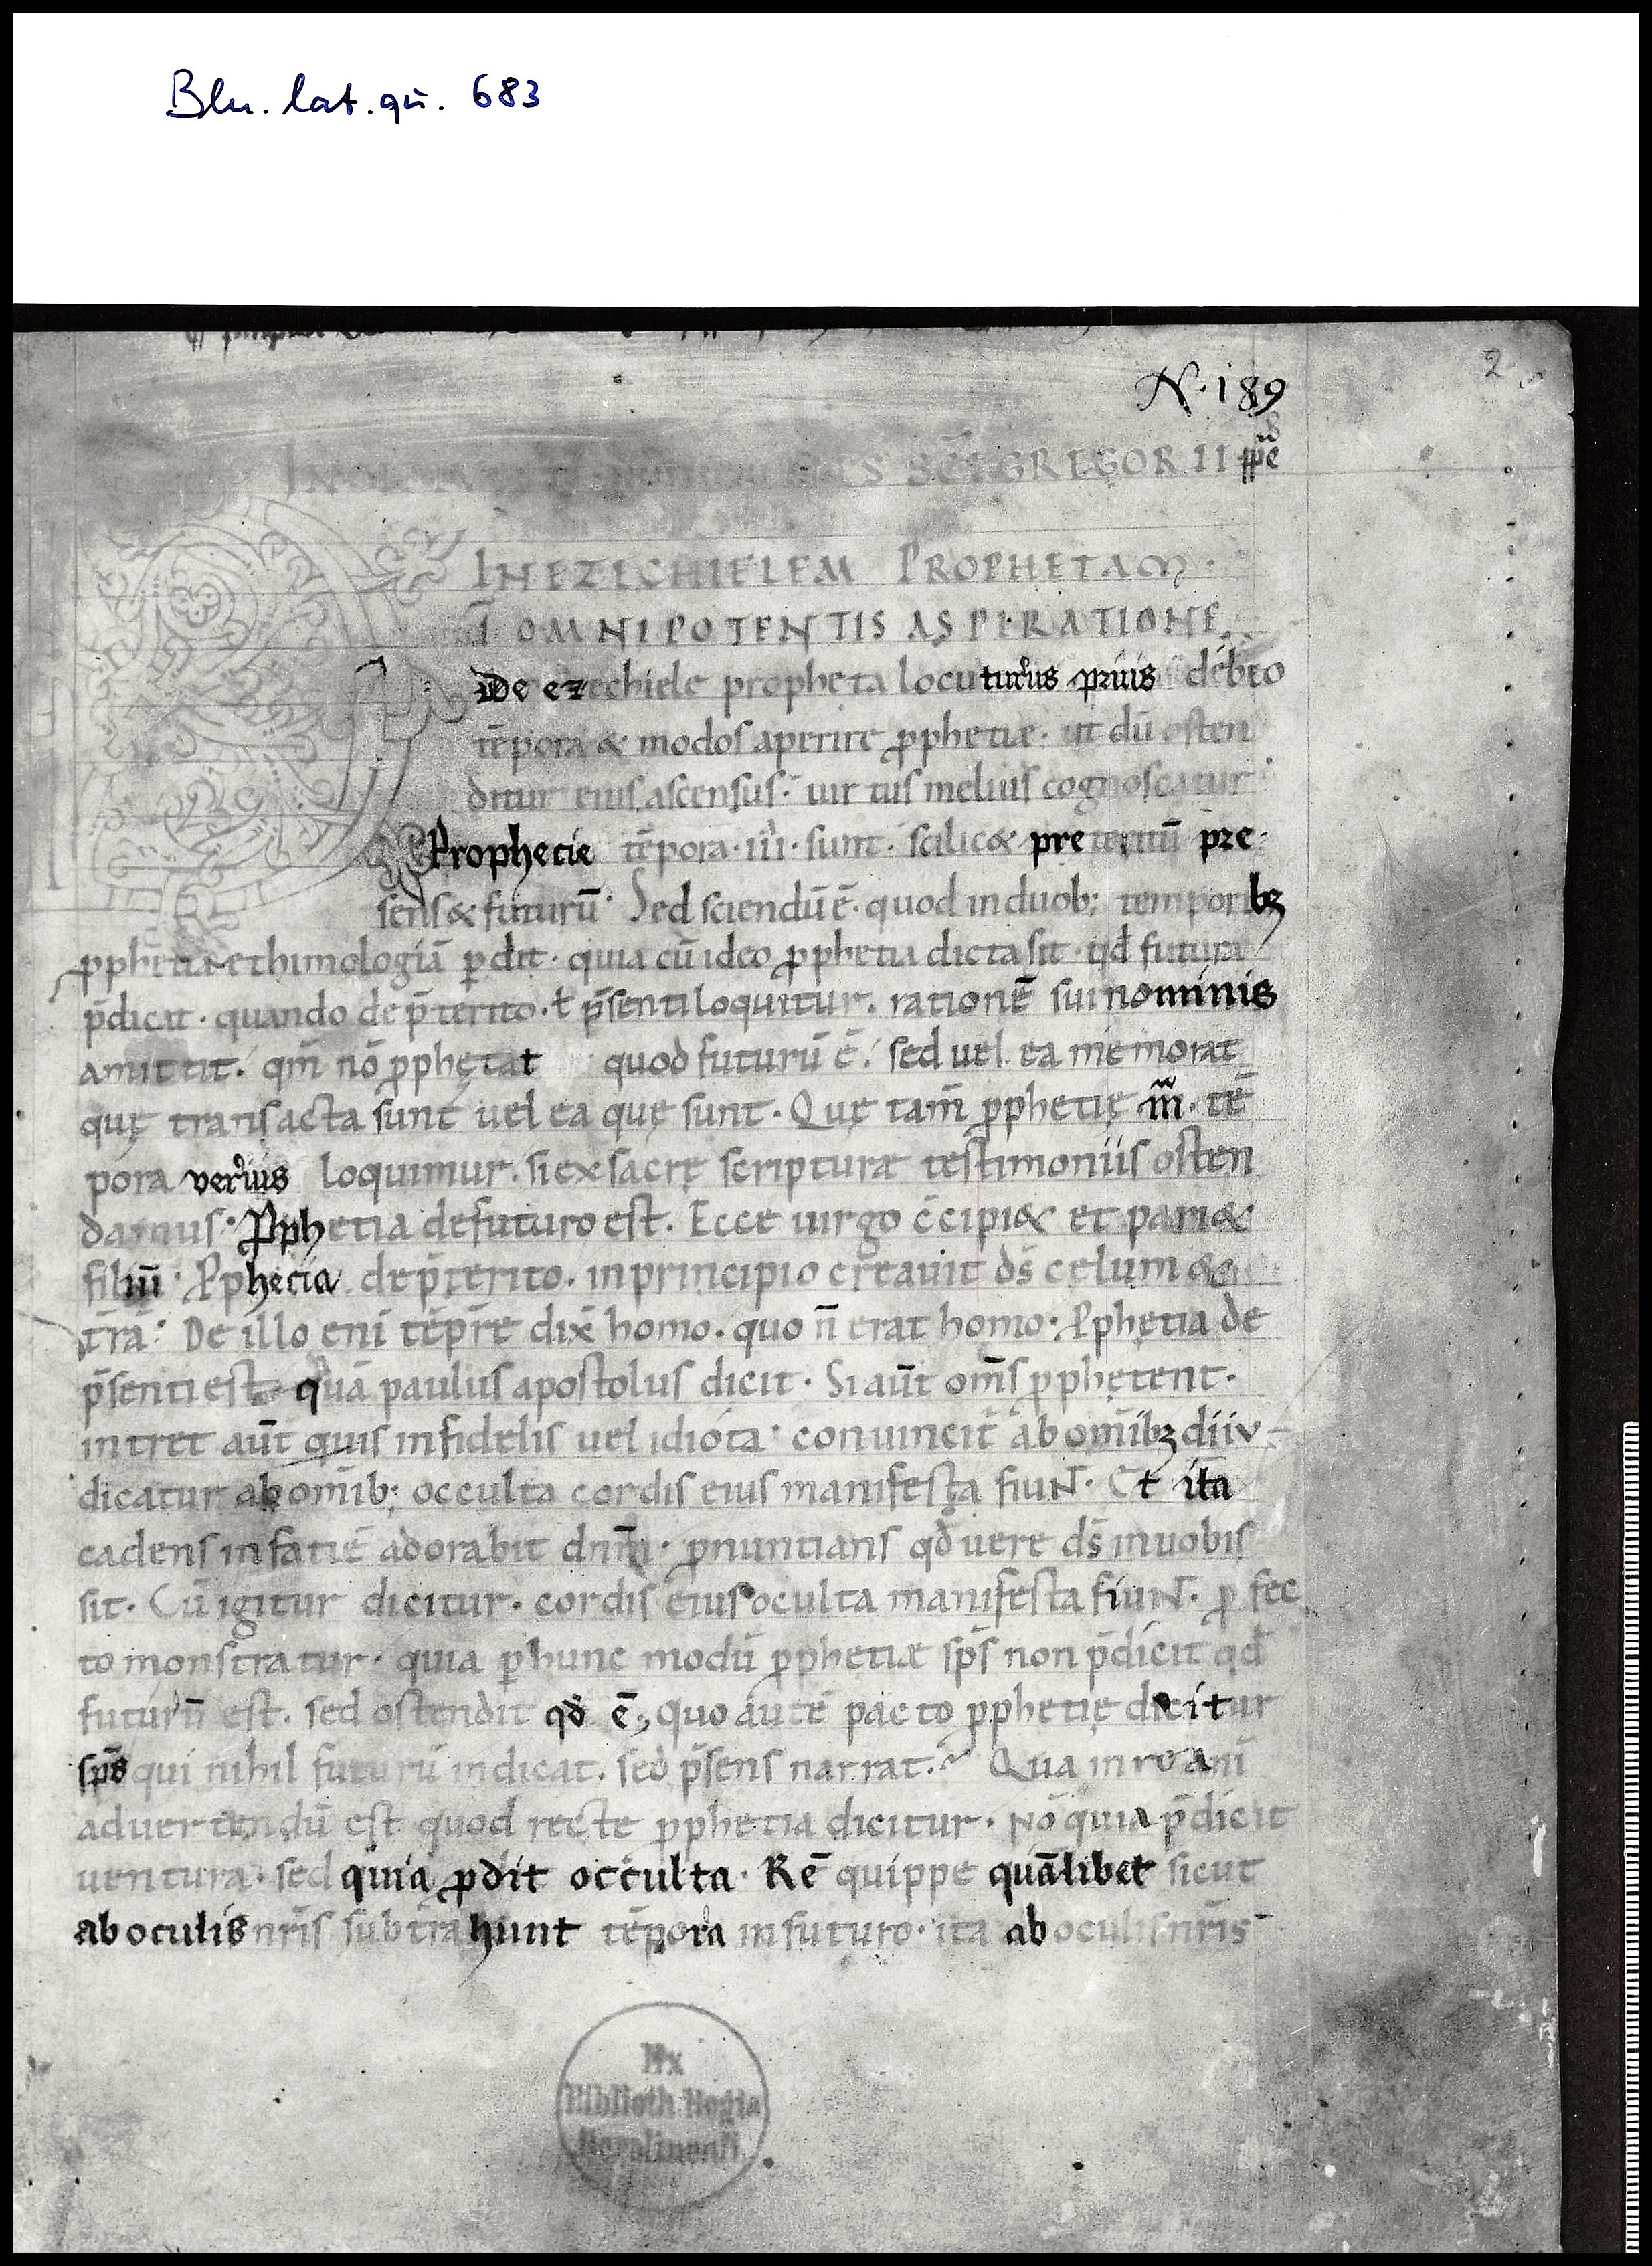 Bln. lat. qu. 683
2
N. 189
SC̄I GREGORII pp̄e
IN EZECHIELEM PROPHETAM.
D̄I OMNIPOTENTIS ASPIRATIONE
De ezechiele propheta locuturus prius debeo
tēpora & modos aperire ꝓphetiæ. ut dū osten
ditur eius ascensus. uirtus melius cognoscatur
Prophecie tēpora .iii. sunt. scilic& preteritū pre-
sens & futurū. Sed sciendū ē. quod in duob; temporibꝫ
ꝓphetia ethimologiā ꝑdit. quia cū ideo ꝓphetia dicta sit. qd̄ futura
p̄dicat. quando de p̄terito. ł p̄senti loquitur. rationē sui nominis
amittit. qm̄ nō ꝓphętat quod futurū ē. sed uel ea memorat
quę transacta sunt uel ea quę sunt. Quę tam̄ ꝓphetię iii. tē
pora verius loquimur. si ex sacrę scripturæ testimoniis osten
damus. Ꝓphetia de futuro est. Ecce uirgo c̄cipi& et pari&
filiū. Ꝓphecia de p̄terito. in principio creauit ds̄ cęlum &
t̄rā. De illo eni tēpr̄e dix̄ homo. quo n̄ erat homo. Ꝓphętia de
p̄senti est quā paulus apostolus dicit. Si aūt om̄s ꝓphętent.
intret aūt quis infidelis uel idiota. conuincit̄ ab om̄ibꝫ diiu-
dicatur ab om̄ib; occulta cordis eius manifesta fiuN̄. Et ita
cadens in fatiē adorabit dnm̄. ꝓnuntians qd̄ uere ds̄ in uobis
sit. Cū igitur dicitur. cordis eius oculta manifesta fiuN̄. ꝓfec
to monstratur. quia ꝑ hunc modū ꝓphetiæ sp̄s non p̄dicit qd̄
futurū est. sed ostendit qd̄ ē. quo autē pacto ꝓphetię dicitur
sp̄s qui nihil futurū indicat. sed p̄sens narrat. Qua in re anī
aduertendū est quod recte ꝓphetia dicitur. nō quia p̄dicit
uentura. sed quia ꝓdit occulta. Rē quippe quālibet sicut
ab oculis nr̄is subtrahunt tēpora in futuro. ita ab oculis nr̄is
Ex
Biblioth Regia
Berolinensi.